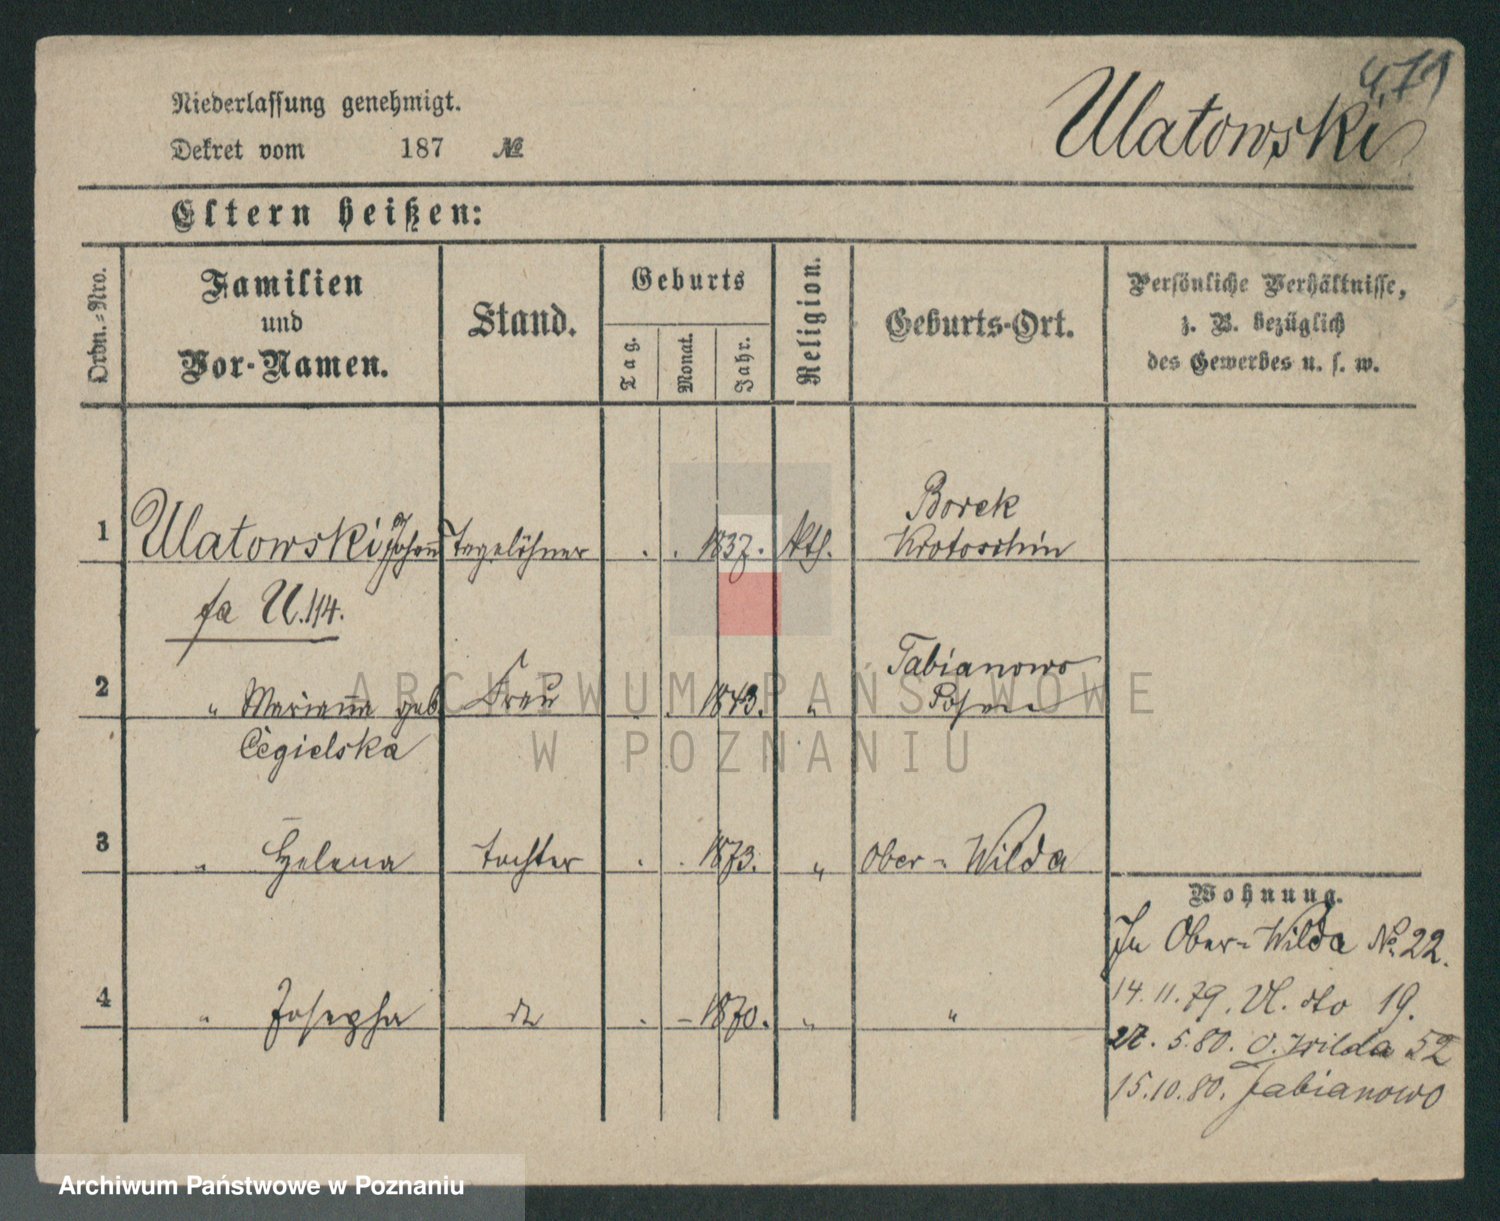 4,79
Niederlassung genehmigt.
Ulatowski
Dekret vom 187 №
Eltern heißen:
Ordn.-Nro.
Familien und Vor-Namen.
Stand.
Geburts
Tag.
Monat.
Jahr.
Religion.
Geburts-Ort.
Persönliche Verhältnisse,
z. B. bezüglich
des Gewerbes u. s. w.
Borek
1 Ulatowski Johann Tagelöhner . . 1837. kth. Krotoschin
fa U.114.
Fabianowo
2 " Marianna geb. Frau . . 1843. " Posen
Cegielska
3 " Helena Tochter . . 1873. " Ober-Wilda
Wohnung.
In Ober-Wilda No. 22.
4 " Josepha do . - 1870. " "
14.11.79. Vl. dto 19.
27. 5.80. O. Wilda 52
15.10.80. Fabianowo
ARCHIWUM PAŃSTWOWE
W POZNANIU
Archiwum Państwowe w Poznaniu